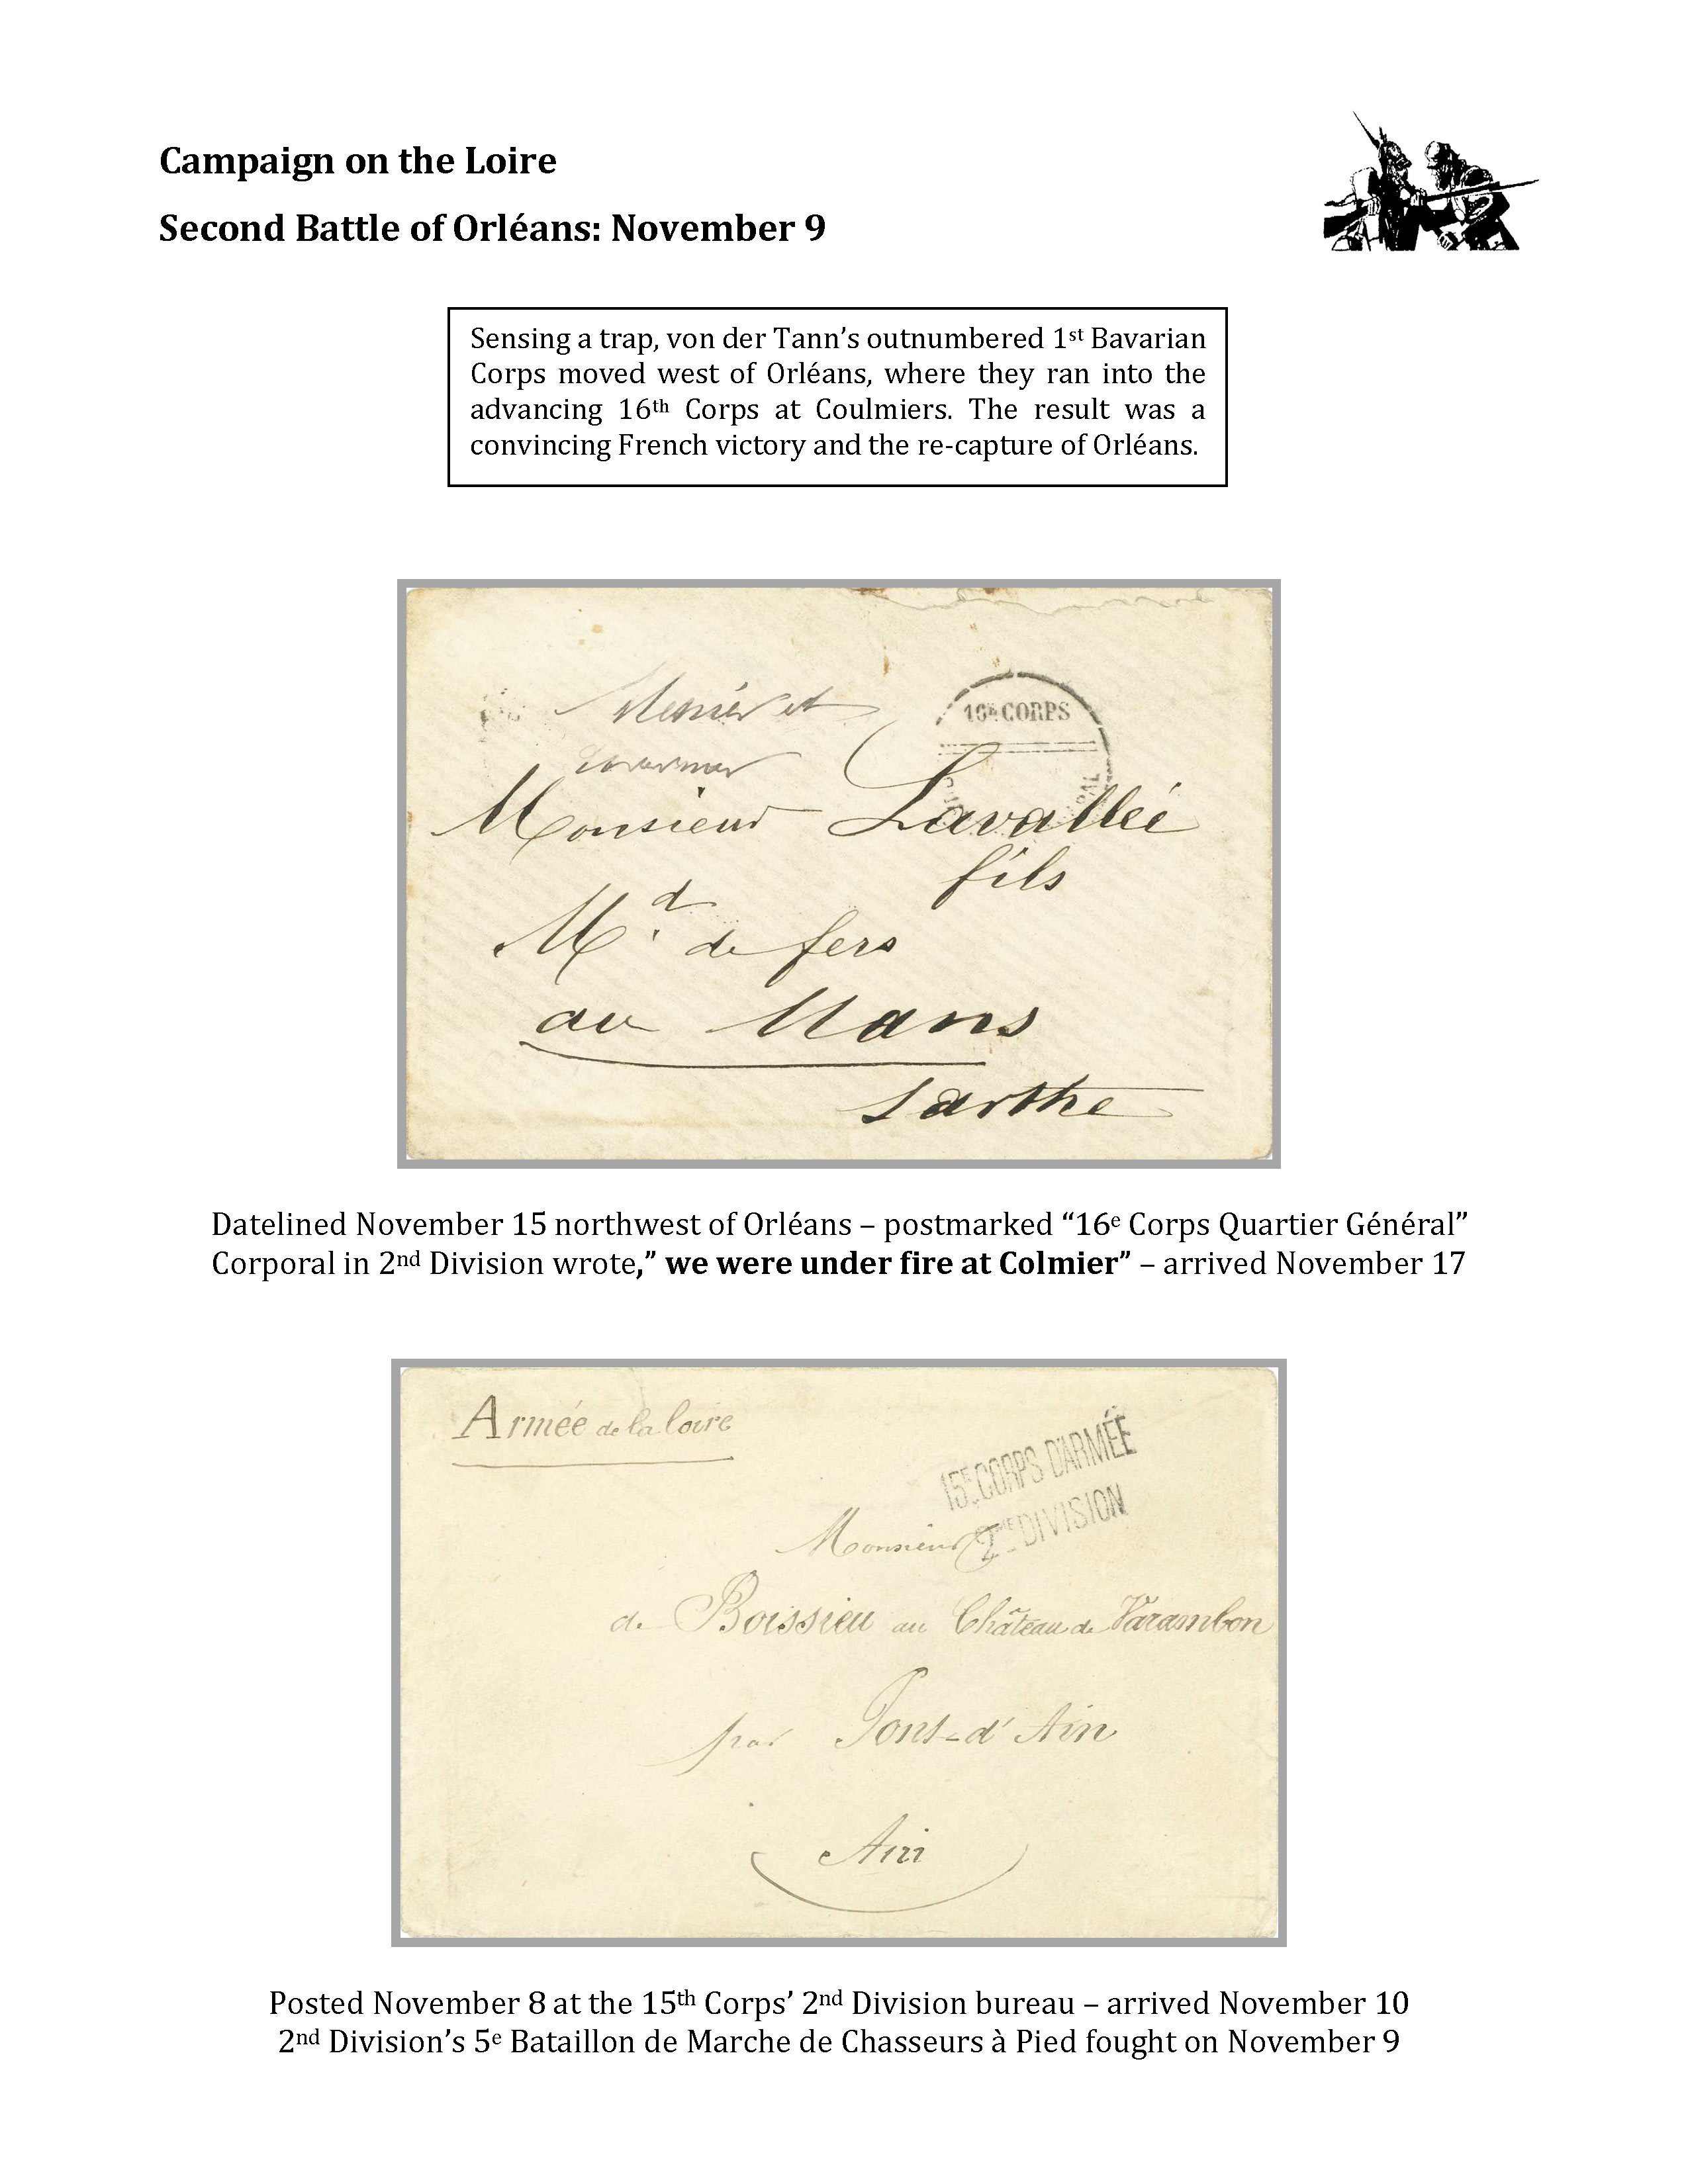 Campaign on the Loire
Second Battle of Orléans: November 9
Sensing a trap, von der Tann’s outnumbered 1st Bavarian
Corps moved west of Orléans, where they ran into the
advancing 16th Corps at Coulmiers. The result was a
convincing French victory and the re-capture of Orléans.
16e CORPS
Monsieur Lavallée
fils
Md de fers
au Mans
Sarthe
Datelined November 15 northwest of Orléans – postmarked “16e Corps Quartier Général”
Corporal in 2nd Division wrote,” we were under fire at Colmier” – arrived November 17
Armée de la loire
15E CORPS D'ARMÉE
2ME DIVISION
Monsieur
de Boissieu au Château de Varambon
par Pont-d'Ain
Ain
Posted November 8 at the 15th Corps’ 2nd Division bureau – arrived November 10
2nd Division’s 5e Bataillon de Marche de Chasseurs à Pied fought on November 9